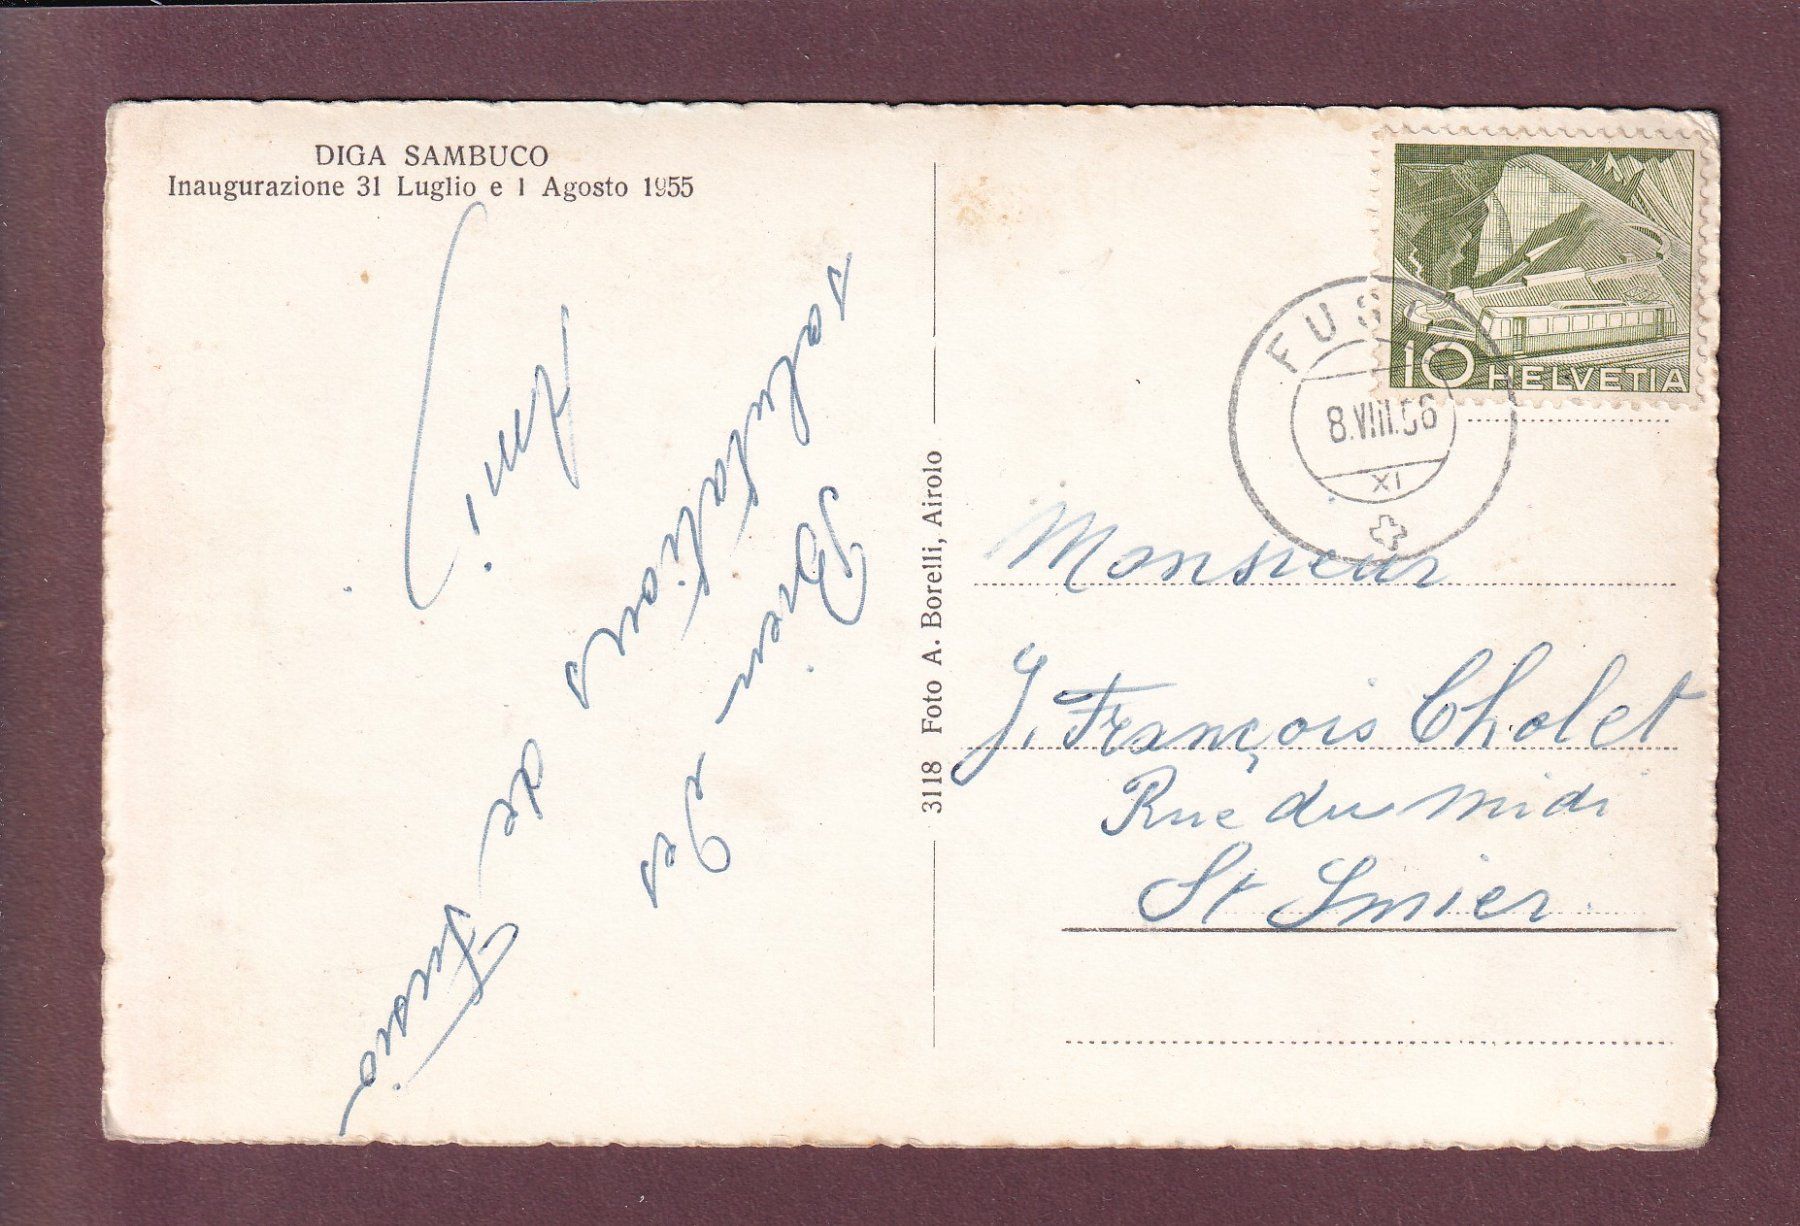 DIGA SAMBUCO
Inaugurazione 31 Luglio e 1 Agosto 1955
Bien des
salutations
de Fusio
Ami
3118 Foto A. Borelli, Airolo
10 HELVETIA
FUSIO
8.VIII.56
XI
Monsieur
J. François Cholet
Rue du midi
St Imier